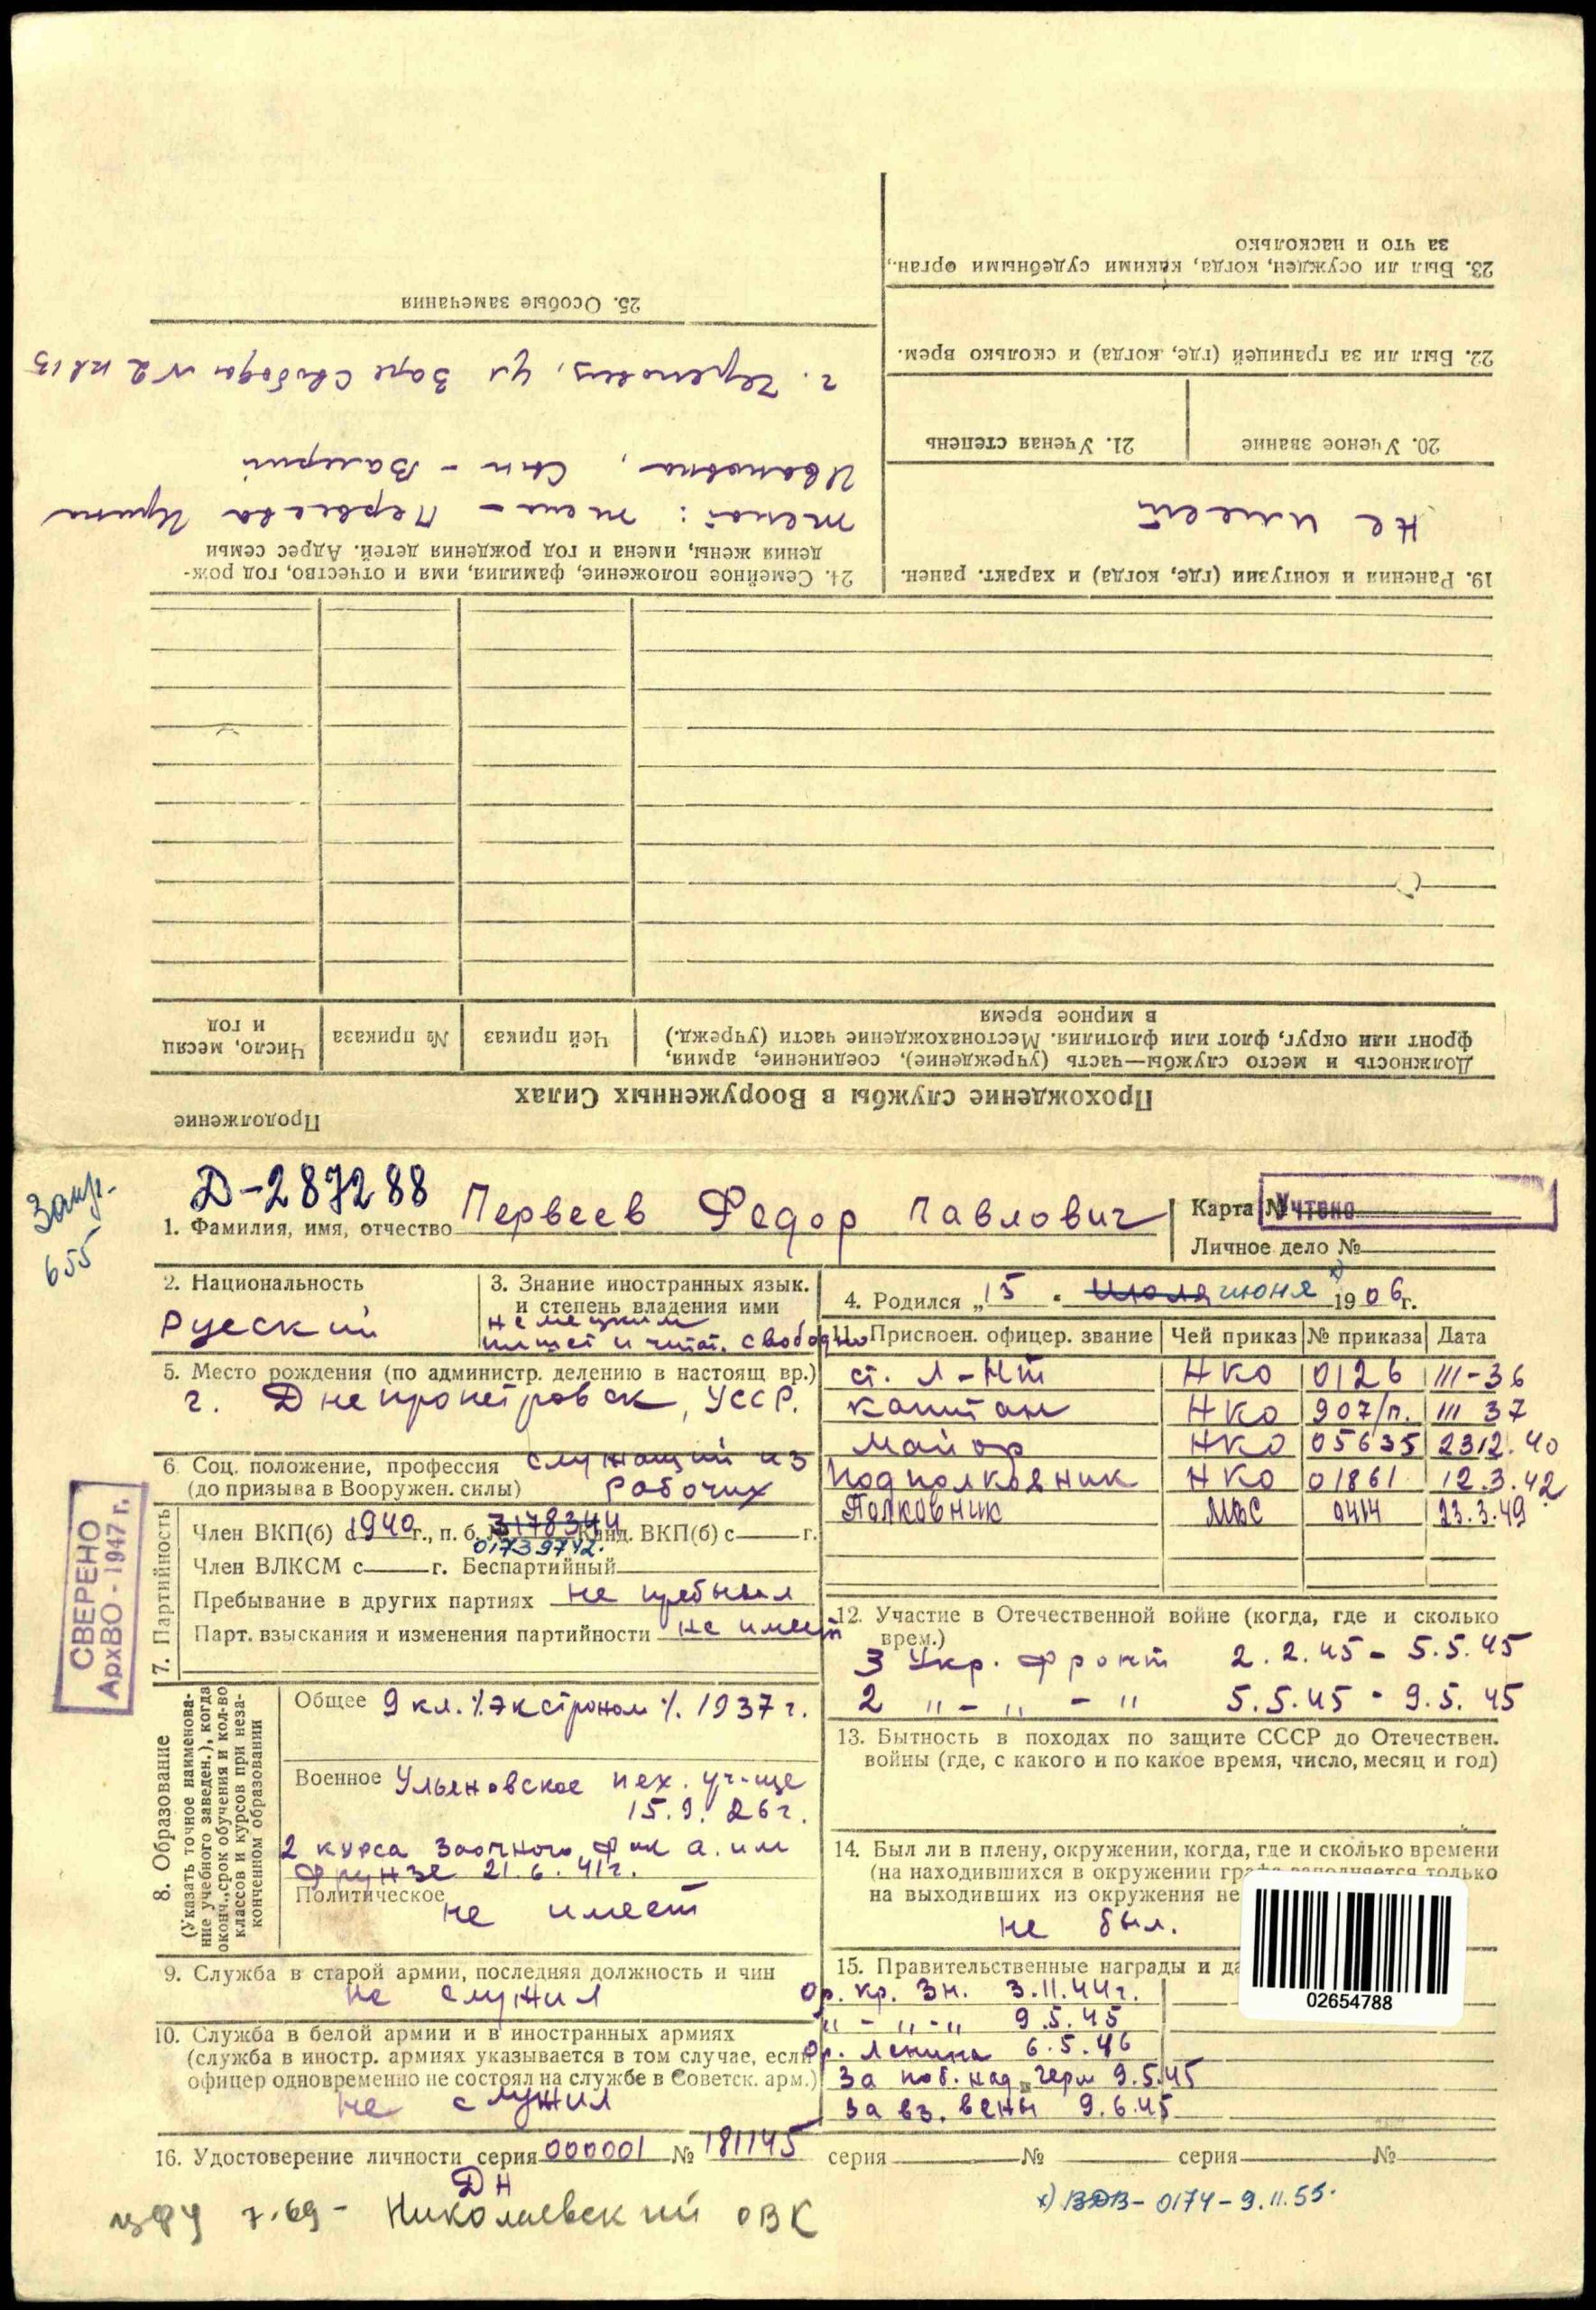 23. Был ли осужден, когда, какими судебными орган.,
за что и насколько
22. Был ли за границей (где, когда) и сколько врем.
20. Ученое звание
21. Ученая степень
19. Ранения и контузии (где, когда) и характ. ранен.
не имеет
25. Особые замечания
г. Череповец, ул Заре Свободы № 2 кв 13
24. Семейное положение, фамилия, имя и отчество, год рож-
дения жены, имена и год рождения детей. Адрес семьи
женат: жена - Первеева Ирина
Ивановна, Сын - Валерий
Продолжение
Прохождение службы в Вооруженных Силах
Должность и место службы—часть (учреждение), соединение, армия,
фронт или округ, флот или флотилия. Местонахождение части (учрежд.)
в мирное время
Чей приказ
№ приказа
Число, месяц
и год
655
Д-287288
1. Фамилия, имя, отчество Первеев Федор Павлович
Карта № Учтено
Личное дело №
2. Национальность
Русский
3. Знание иностранных язык.
и степень владения ими
немецким
пишет и читат. свободно
4. Родился „15 " июля июня x) 1906г.
11. Присвоен. офицер. звание | Чей приказ | № приказа | Дата
ст. л-нт НКО 0126 III-36
капитан НКО 907/п. III 37
майор НКО 05635 2312.40
подполковник НКО 01861 12.3.42
Полковник МВС 0414 23.3.49
5. Место рождения (по администр. делению в настоящ. вр.)
г. Днепропетровск, УССР.
6. Соц. положение, профессия служащий из
(до призыва в Вооружен. силы) рабочих
СВЕРЕНО
АрхВО - 1947 г.
7. Партийность
Член ВКП(б) с 1940 г., п. б. № 3178344 Канд. ВКП(б) с г.
01739742.
Член ВЛКСМ с г. Беспартийный
Пребывание в других партиях не пребывал
Парт. взыскания и изменения партийности не имеет
12. Участие в Отечественной войне (когда, где и сколько
врем.)
3 Укр. фронт 2.2.45 - 5.5.45
2 " - " - " 5.5.45 - 9.5.45
8. Образование
(Указать точное наименова-
ние учебного заведен.), когда
оконч., срок обучения и кол-во
классов и курсов при неза-
конченном образовании
Общее 9 кл. /экстроном/. 1937 г.
Военное Ульяновское пех. уч-ще
15.9.26г.
2 курса Заочного фак а. им
Фрунзе 21.6.41г.
Политическое
не имеет
13. Бытность в походах по защите СССР до Отечествен.
войны (где, с какого и по какое время, число, месяц и год)
14. Был ли в плену, окружении, когда, где и сколько времени
(на находившихся в окружении графа заполняется только
на выходивших из окружения не
не был.
9. Служба в старой армии, последняя должность и чин
не служил
10. Служба в белой армии и в иностранных армиях
(служба в иностр. армиях указывается в том случае, если
офицер одновременно не состоял на службе в Советск. арм.)
не служил
15. Правительственные награды и да
Ор. Кр. Зн. 3.11.44г.
" - " - " 9.5.45
Ор. Ленина 6.5.46
За поб. над герм 9.5.45
За вз. вены 9.6.45
02654788
16. Удостоверение личности серия 000001 № 181145 серия № серия №
ДН
7.69 - Николаевский ОВК
x) ВДВ - 0174 - 9.11.55.